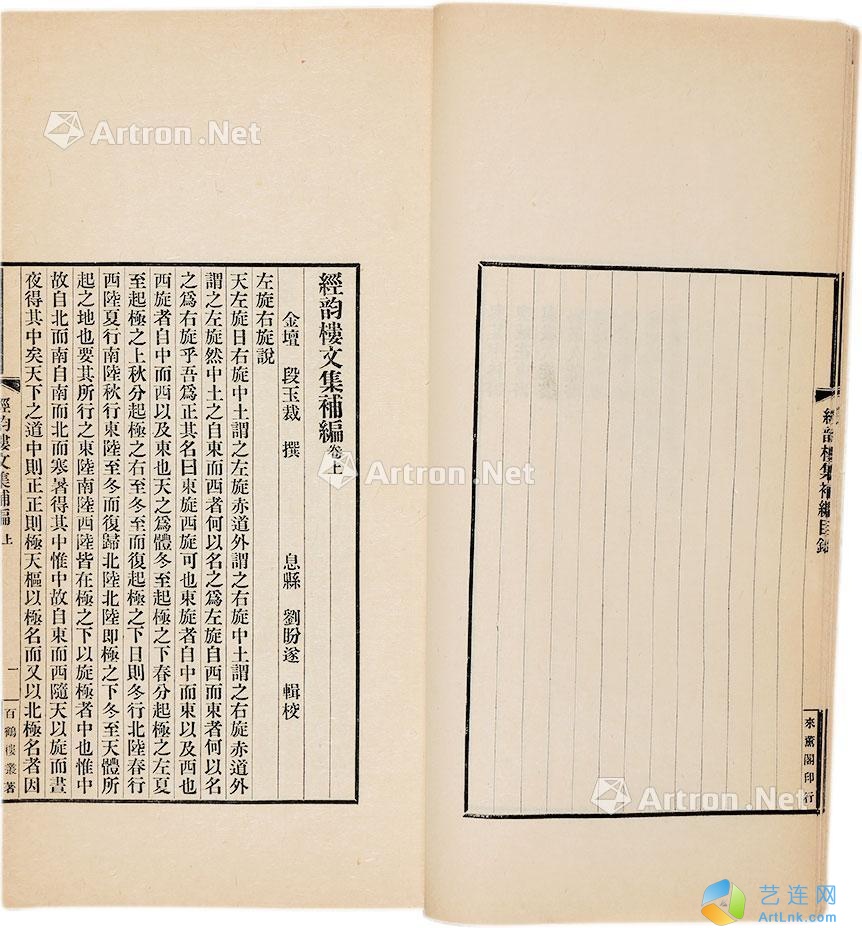 經韵樓集補編目錄
來薰閣印行
經韵樓文集補編卷上
金壇 段玉裁 撰 息縣 劉盼遂 輯校
左旋右旋說
天左旋日右旋中土謂之左旋赤道外謂之右旋中土謂之右旋赤道外
謂之左旋然中土之自東而西者何以名之為左旋自西而東者何以名
之為右旋乎吾為正其名曰東旋西旋可也東旋者自中而東以及西也
西旋者自中而西以及東也天之為體冬至起極之下春分起極之左夏
至起極之上秋分起極之右至冬至而復起極之下日則冬行北陸春行
西陸夏行南陸秋行東陸至冬而復歸北陸北陸即極之下冬至天體所
起之地也要其所行之東陸南陸西陸皆在極之下以旋極者中也惟中
故自北而南自南而北而寒暑得其中惟中故自東而西隨天以旋而晝
夜得其中矣天下之道中則正正則極天樞以極名而又以北極名者因
經韵樓文集補編 上
一
百鶴樓叢著
Artron.Net
Artron.Net
Artron.Net
Artron.Net
艺连网
ArtLnk.com